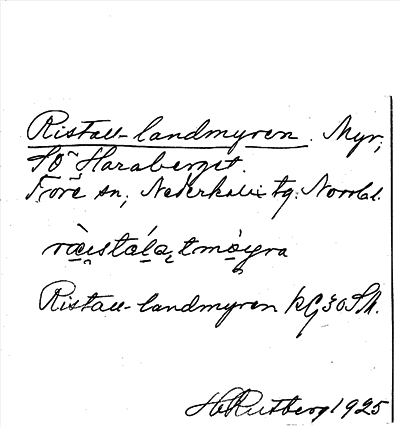 Ristall-landmyren. Myr,
SÖ Haraberget.
Töre sn, Nederkalix tg. Norrb l.
Ristall-landmyren kG30SM.
H Rutberg 1925